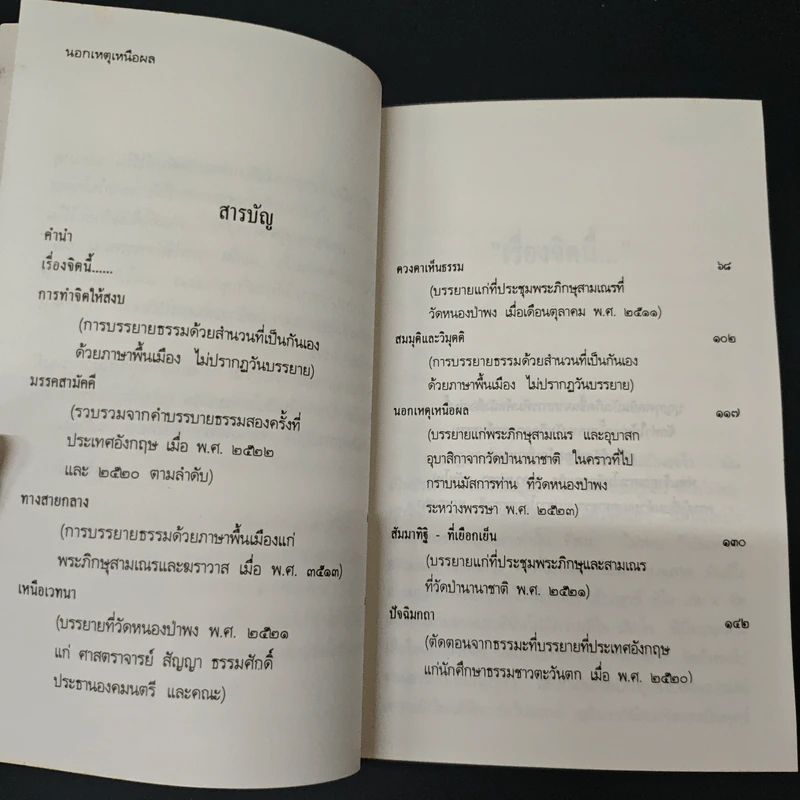 นอกเหตุเหนือผล
สารบัญ
คำนำ
เรื่องจิตนี้......
การทำจิตให้สงบ
(การบรรยายธรรมด้วยสำนวนที่เป็นกันเอง
ด้วยภาษาพื้นเมือง ไม่ปรากฏวันบรรยาย)
มรรคสามัคคี
(รวบรวมจากคำบรรบายธรรมสองครั้งที่
ประเทศอังกฤษ เมื่อ พ.ศ. ๒๕๒๒
และ ๒๕๒๐ ตามลำดับ)
ทางสายกลาง
(การบรรยายธรรมด้วยภาษาพื้นเมืองแก่
พระภิกษุสามเณรและฆราวาส เมื่อ พ.ศ. ๓๕๑๓)
เหนือเวทนา
(บรรยายที่วัดหนองป่าพง พ.ศ. ๒๕๒๑
แก่ ศาสตราจารย์ สัญญา ธรรมศักดิ์
ประธานองคมนตรี และคณะ)
ดวงตาเห็นธรรม ๖๘
(บรรยายแก่ที่ประชุมพระภิกษุสามเณรที่
วัดหนองป่าพง เมื่อเดือนตุลาคม พ.ศ. ๒๕๑๑)
สมมุติและวิมุตติ ๑๐๒
(การบรรยายธรรมด้วยสำนวนที่เป็นกันเอง
ด้วยภาษาพื้นเมือง ไม่ปรากฏวันบรรยาย)
นอกเหตุเหนือผล ๑๑๗
(บรรยายแก่พระภิกษุสามเณร และอุบาสก
อุบาสิกาจากวัดป่านานาชาติ ในคราวที่ไป
กราบนมัสการท่าน ที่วัดหนองป่าพง
ระหว่างพรรษา พ.ศ. ๒๕๒๓)
สัมมาทิฐิ - ที่เยือกเย็น ๑๓๐
(บรรยายแก่ที่ประชุมพระภิกษุและสามเณร
ที่วัดป่านานาชาติ พ.ศ. ๒๕๒๑)
ปัจฉิมกถา ๑๔๒
(ตัดตอนจากธรรมะที่บรรยายที่ประเทศอังกฤษ
แก่นักศึกษาธรรมชาวตะวันตก เมื่อ พ.ศ. ๒๕๒๐)